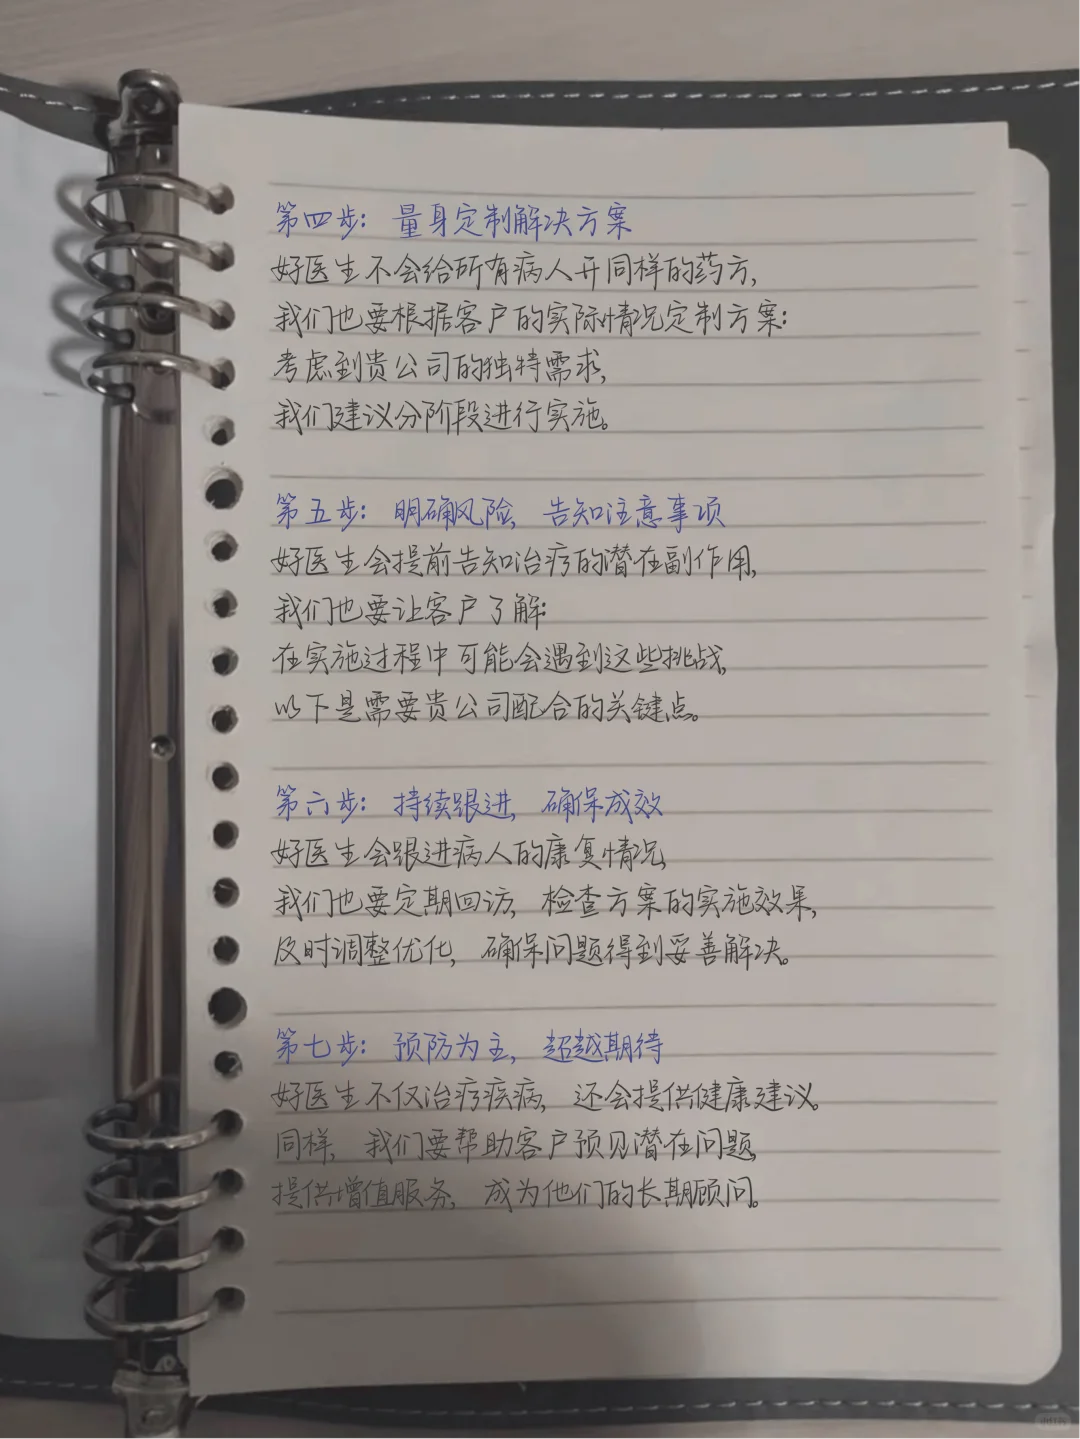 第四步：量身定制解决方案
好医生不会给所有病人开同样的药方，
我们也要根据客户的实际情况定制方案：
考虑到贵公司的独特需求，
我们建议分阶段进行实施。
第五步：明确风险，告知注意事项
好医生会提前告知治疗的潜在副作用，
我们也要让客户了解：
在实施过程中可能会遇到这些挑战，
以下是需要贵公司配合的关键点。
第六步：持续跟进，确保成效
好医生会跟进病人的康复情况，
我们也要定期回访，检查方案的实施效果，
及时调整优化，确保问题得到妥善解决。
第七步：预防为主，超越期待
好医生不仅治疗疾病，还会提供健康建议。
同样，我们要帮助客户预见潜在问题，
提供增值服务，成为他们的长期顾问。
小红书